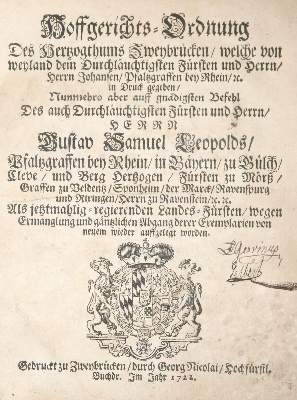 Hoffgerichts-Ordnung
Des Hertzogthums Zweybrücken/ welche von
weyland dem Durchläuchtigsten Fürsten und Herrn/
Herrn Johansen/ Pfaltzgraffen bey Rhein/ ꝛc.
in Druck gegeben/
Nunmehro aber auff gnädigsten Befehl
Des auch Durchläuchtigsten Fürsten und Herrn/
HERRN
Gustav Samuel Leopolds/
Pfaltzgraffen bey Rhein/ in Bäyern/ zu Gülch/
Cleve/ und Berg Hertzogen/ Fürsten zu Mörß/
Graffen zu Veldentz/ Sponheim/ der Marck/ Ravenspurg
und Rixingen/ Herrn zu Ravenstein/ ꝛc. ꝛc.
Als jetztmahlig-regierenden Landes-Fürsten/ wegen
Ermanglung und gäntzlichen Abgang derer Exemplarien von
neuem wieder auffgelegt worden.
Gedruckt zu Zweybrücken/ durch Georg Nicolai/ Hochfürstl.
Buchdr. Im Jahr 1722.